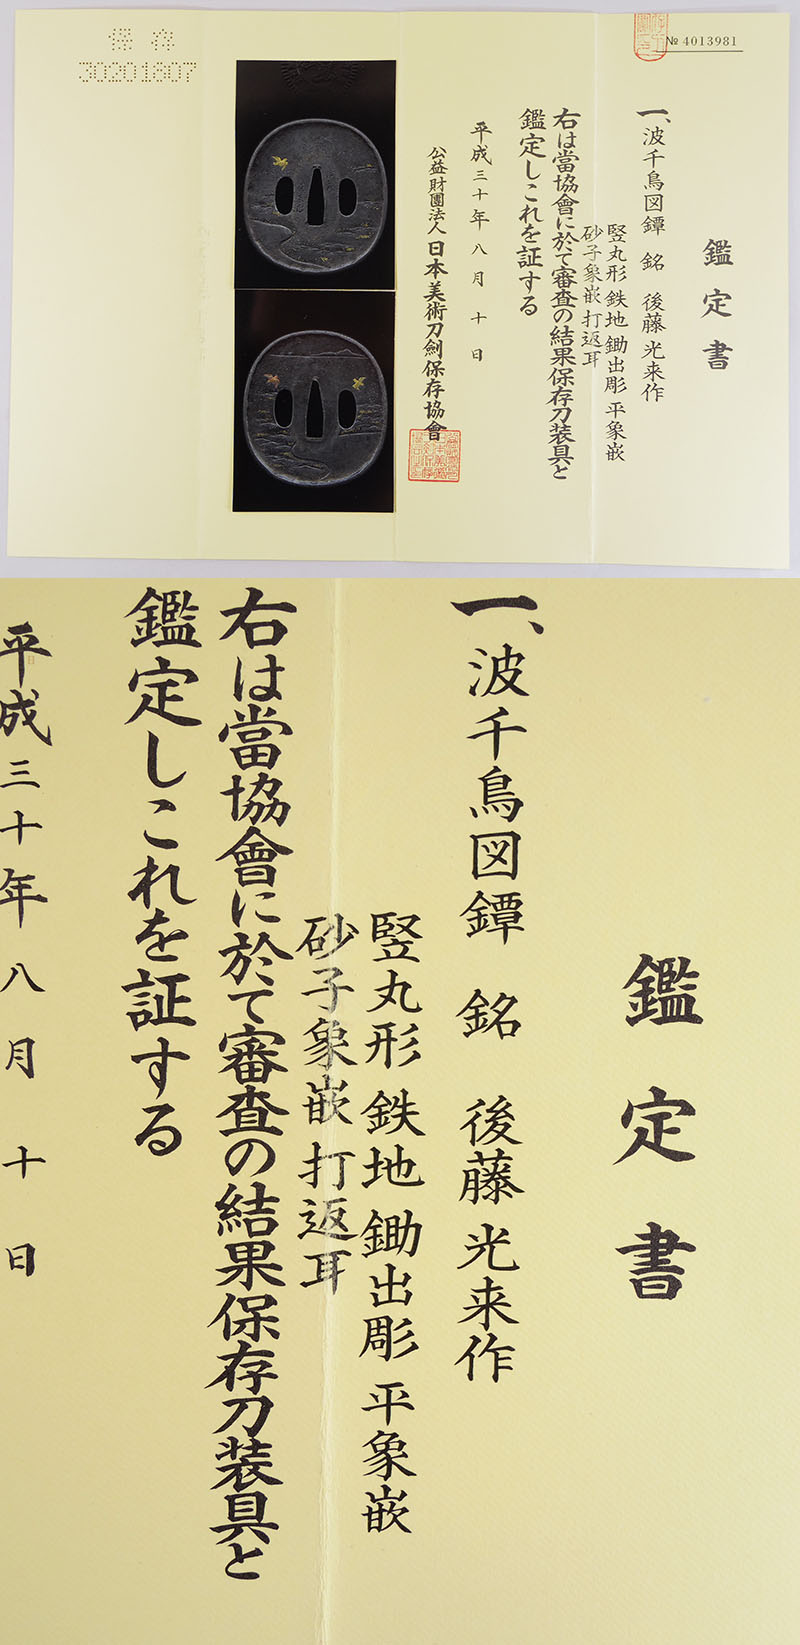 保存
30201607
№ 4013981
鑑定書
一、波千鳥図鐔 銘 後藤光来作
竪丸形 鉄地 鋤出彫 平象嵌
砂子象嵌 打返耳
右は當協會に於て審査の結果保存刀装具と
鑑定しこれを証する
平成三十年八月十日
公益財團法人 日本美術刀劍保存協會
鑑定書
一、波千鳥図鐔 銘 後藤光来作
竪丸形 鉄地 鋤出彫 平象嵌
砂子象嵌 打返耳
右は當協會に於て審査の結果保存刀装具と
鑑定しこれを証する
平成三十年八月十日